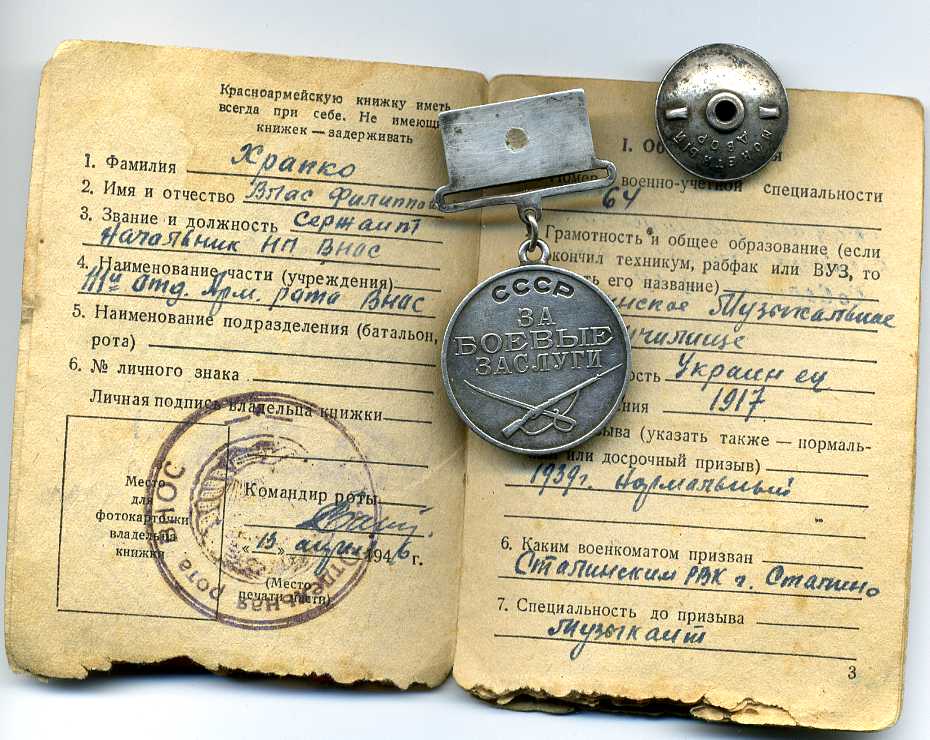 Красноармейскую книжку иметь
всегда при себе. Не имеющи
книжек — задерживать
1. Фамилия Храпко
2. Имя и отчество Влас Филиппов
3. Звание и должность Сержант
Начальник НП ВНОС
4. Наименование части (учреждения)
Отд. Арм. рота ВНОС
5. Наименование подразделения (батальон,
рота)
6. № личного знака
Личная подпись владельца книжки
Место
для
фотокарточки
владельца
книжки
Командир роты
„13" 1946 г.
(Место
печати части)
Отдельная рота ВНОС
I. Об
Номер военно-учетной специальности
64
Грамотность и общее образование (если
окончил техникум, рабфак или ВУЗ, то
ть его название)
инское Музыкальное
училище
ость Украинец
ния 1917
ыва (указать также — нормаль-
ный или досрочный призыв)
1939г. нормальный
6. Каким военкоматом призван
Сталинским РВК г. Сталино
7. Специальность до призыва
Музыкант
3
СССР
ЗА
БОЕВЫЕ
ЗАСЛУГИ
МОНЕТНЫЙ
ДВОР